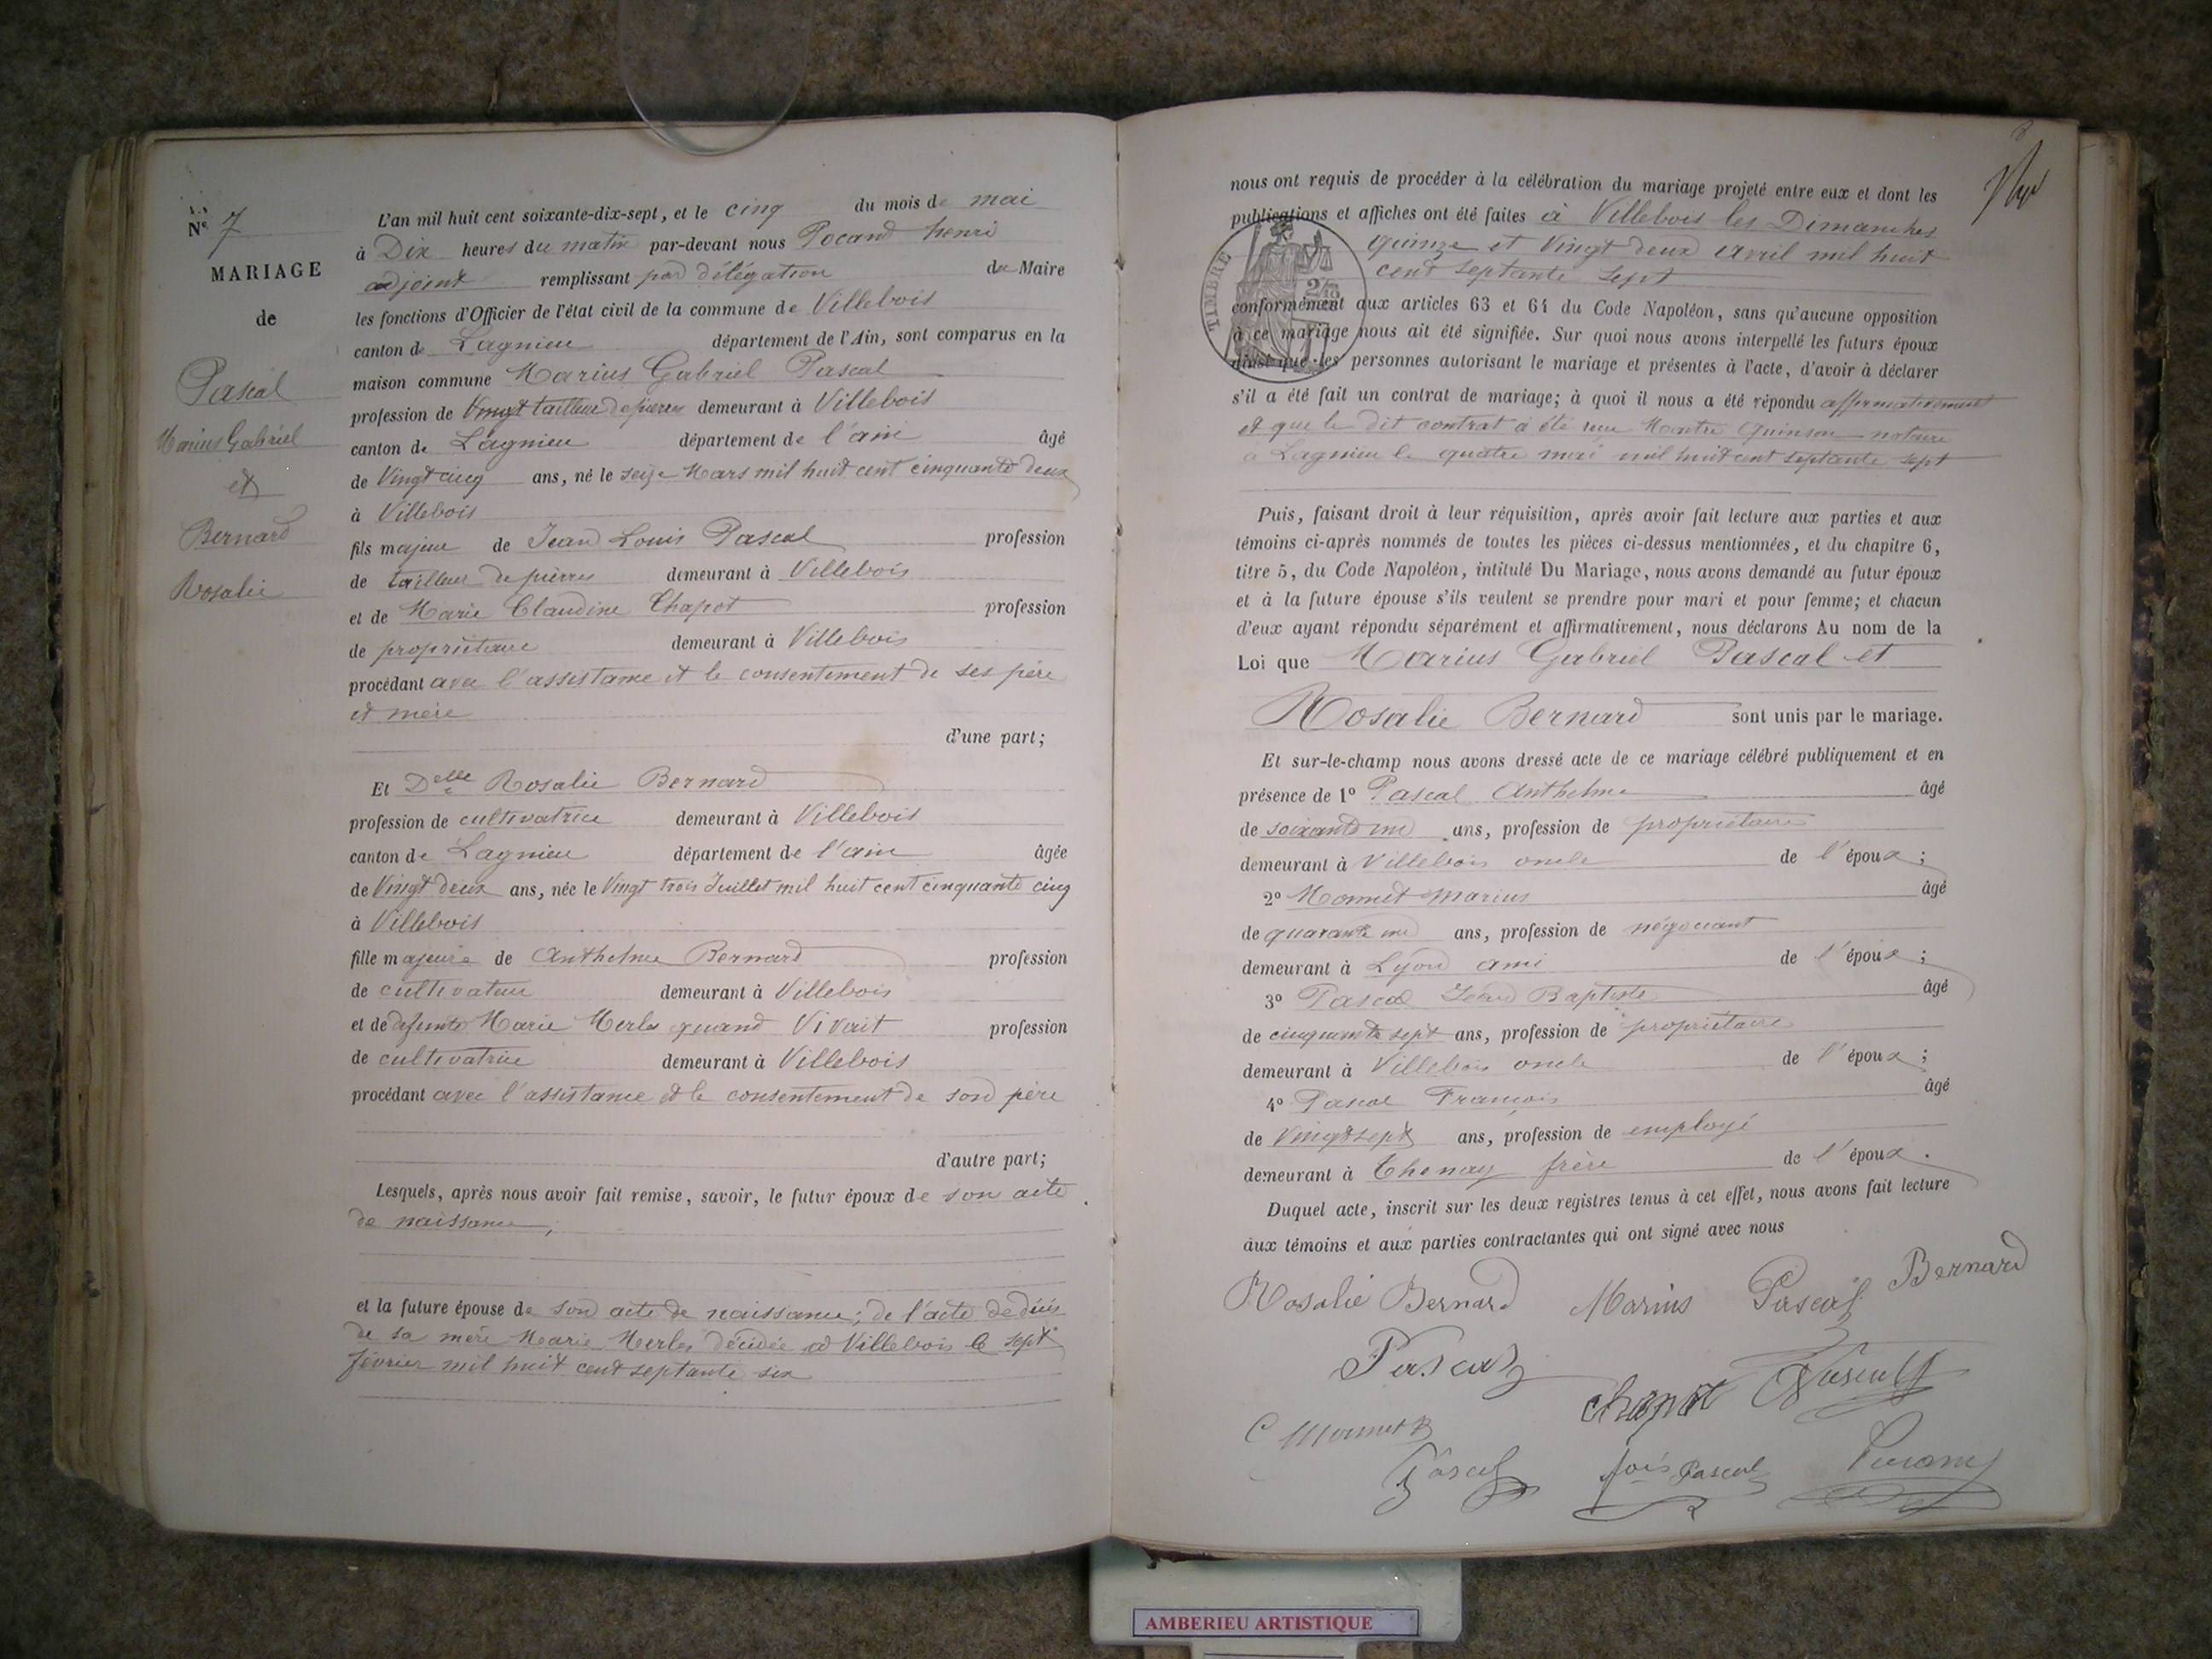 Nº 7
MARIAGE
de
Pascal
Marius Gabriel
et
Bernard
Rosalie
L'an mil huit cent soixante-dix-sept, et le cinq du mois de mai
à Dix heures du matin par-devant nous Pocard henri
adjoint remplissant par délégation du Maire
les fonctions d'Officier de l'état civil de la commune de Villebois
canton de Lagnieu département de l'Ain, sont comparus en la
maison commune Marius Gabriel Pascal
profession de tailleur de pierres demeurant à Villebois
canton de Lagnieu département de l'ain âgé
de Vingt cinq ans, né le seize Mars mil huit cent cinquante deux
à Villebois
fils majeur de Jean Louis Pascal profession
de tailleur de pierres demeurant à Villebois
et de Marie Claudine Chapot profession
de propriétaire demeurant à Villebois
procédant avec l'assistance et le consentement de ses père
et mère
d'une part;
Et Delle Rosalie Bernard
profession de cultivatrice demeurant à Villebois
canton de Lagnieu département de l'ain âgée
de Vingt deux ans, née le Vingt trois Juillet mil huit cent cinquante cinq
à Villebois
fille majeure de Anthelme Bernard profession
de cultivateur demeurant à Villebois
et de defunte Marie Merle quand Vivait profession
de cultivatrice demeurant à Villebois
procédant avec l'assistance et le consentement de son père
d'autre part;
Lesquels, après nous avoir fait remise, savoir, le futur époux de son acte
de naissance;
et la future épouse de son acte de naissance; de l'acte de décès
de sa mère Marie Merle décédée à Villebois le sept
février mil huit cent septante six
nous ont requis de procéder à la célébration du mariage projeté entre eux et dont les
publications et affiches ont été faites à Villebois les Dimanches
quinze et Vingt deux avril mil huit
cent septante sept
TIMBRE
conformément aux articles 63 et 64 du Code Napoléon, sans qu'aucune opposition
à ce mariage nous ait été signifiée. Sur quoi nous avons interpellé les futurs époux
ainsi que les personnes autorisant le mariage et présentes à l'acte, d'avoir à déclarer
s'il a été fait un contrat de mariage; à quoi il nous a été répondu affirmativement
et que le dit contrat a été Quinson notaire
a Lagnieu le quatre mai mil huit cent septante sept
Puis, faisant droit à leur réquisition, après avoir fait lecture aux parties et aux
témoins ci-après nommés de toutes les pièces ci-dessus mentionnées, et du chapitre 6,
titre 5, du Code Napoléon, intitulé Du Mariage, nous avons demandé au futur époux
et à la future épouse s'ils veulent se prendre pour mari et pour femme; et chacun
d'eux ayant répondu séparément et affirmativement, nous déclarons Au nom de la
Loi que Marius Gabriel Pascal et
Rosalie Bernard sont unis par le mariage.
Et sur-le-champ nous avons dressé acte de ce mariage célébré publiquement et en
présence de 1º Pascal Anthelme âgé
de soixante un ans, profession de propriétaire
demeurant à Villebois oncle de l'époux;
2º Monnet Marius âgé
de quarante un ans, profession de négociant
demeurant à Lyon ami de l'époux;
3º Pascal Jean Baptiste âgé
de cinquante sept ans, profession de propriétaire
demeurant à Villebois oncle de l'époux;
4º Pascal François âgé
de Vingt sept ans, profession de employé
demeurant à Thenay frère de l'époux.
Duquel acte, inscrit sur les deux registres tenus à cet effet, nous avons fait lecture
aux témoins et aux parties contractantes qui ont signé avec nous
Rosalie Bernard Marius Pascal Bernard
Pascal chapot Pascal
C Monnet
Pascal fois Pascal
AMBERIEU ARTISTIQUE